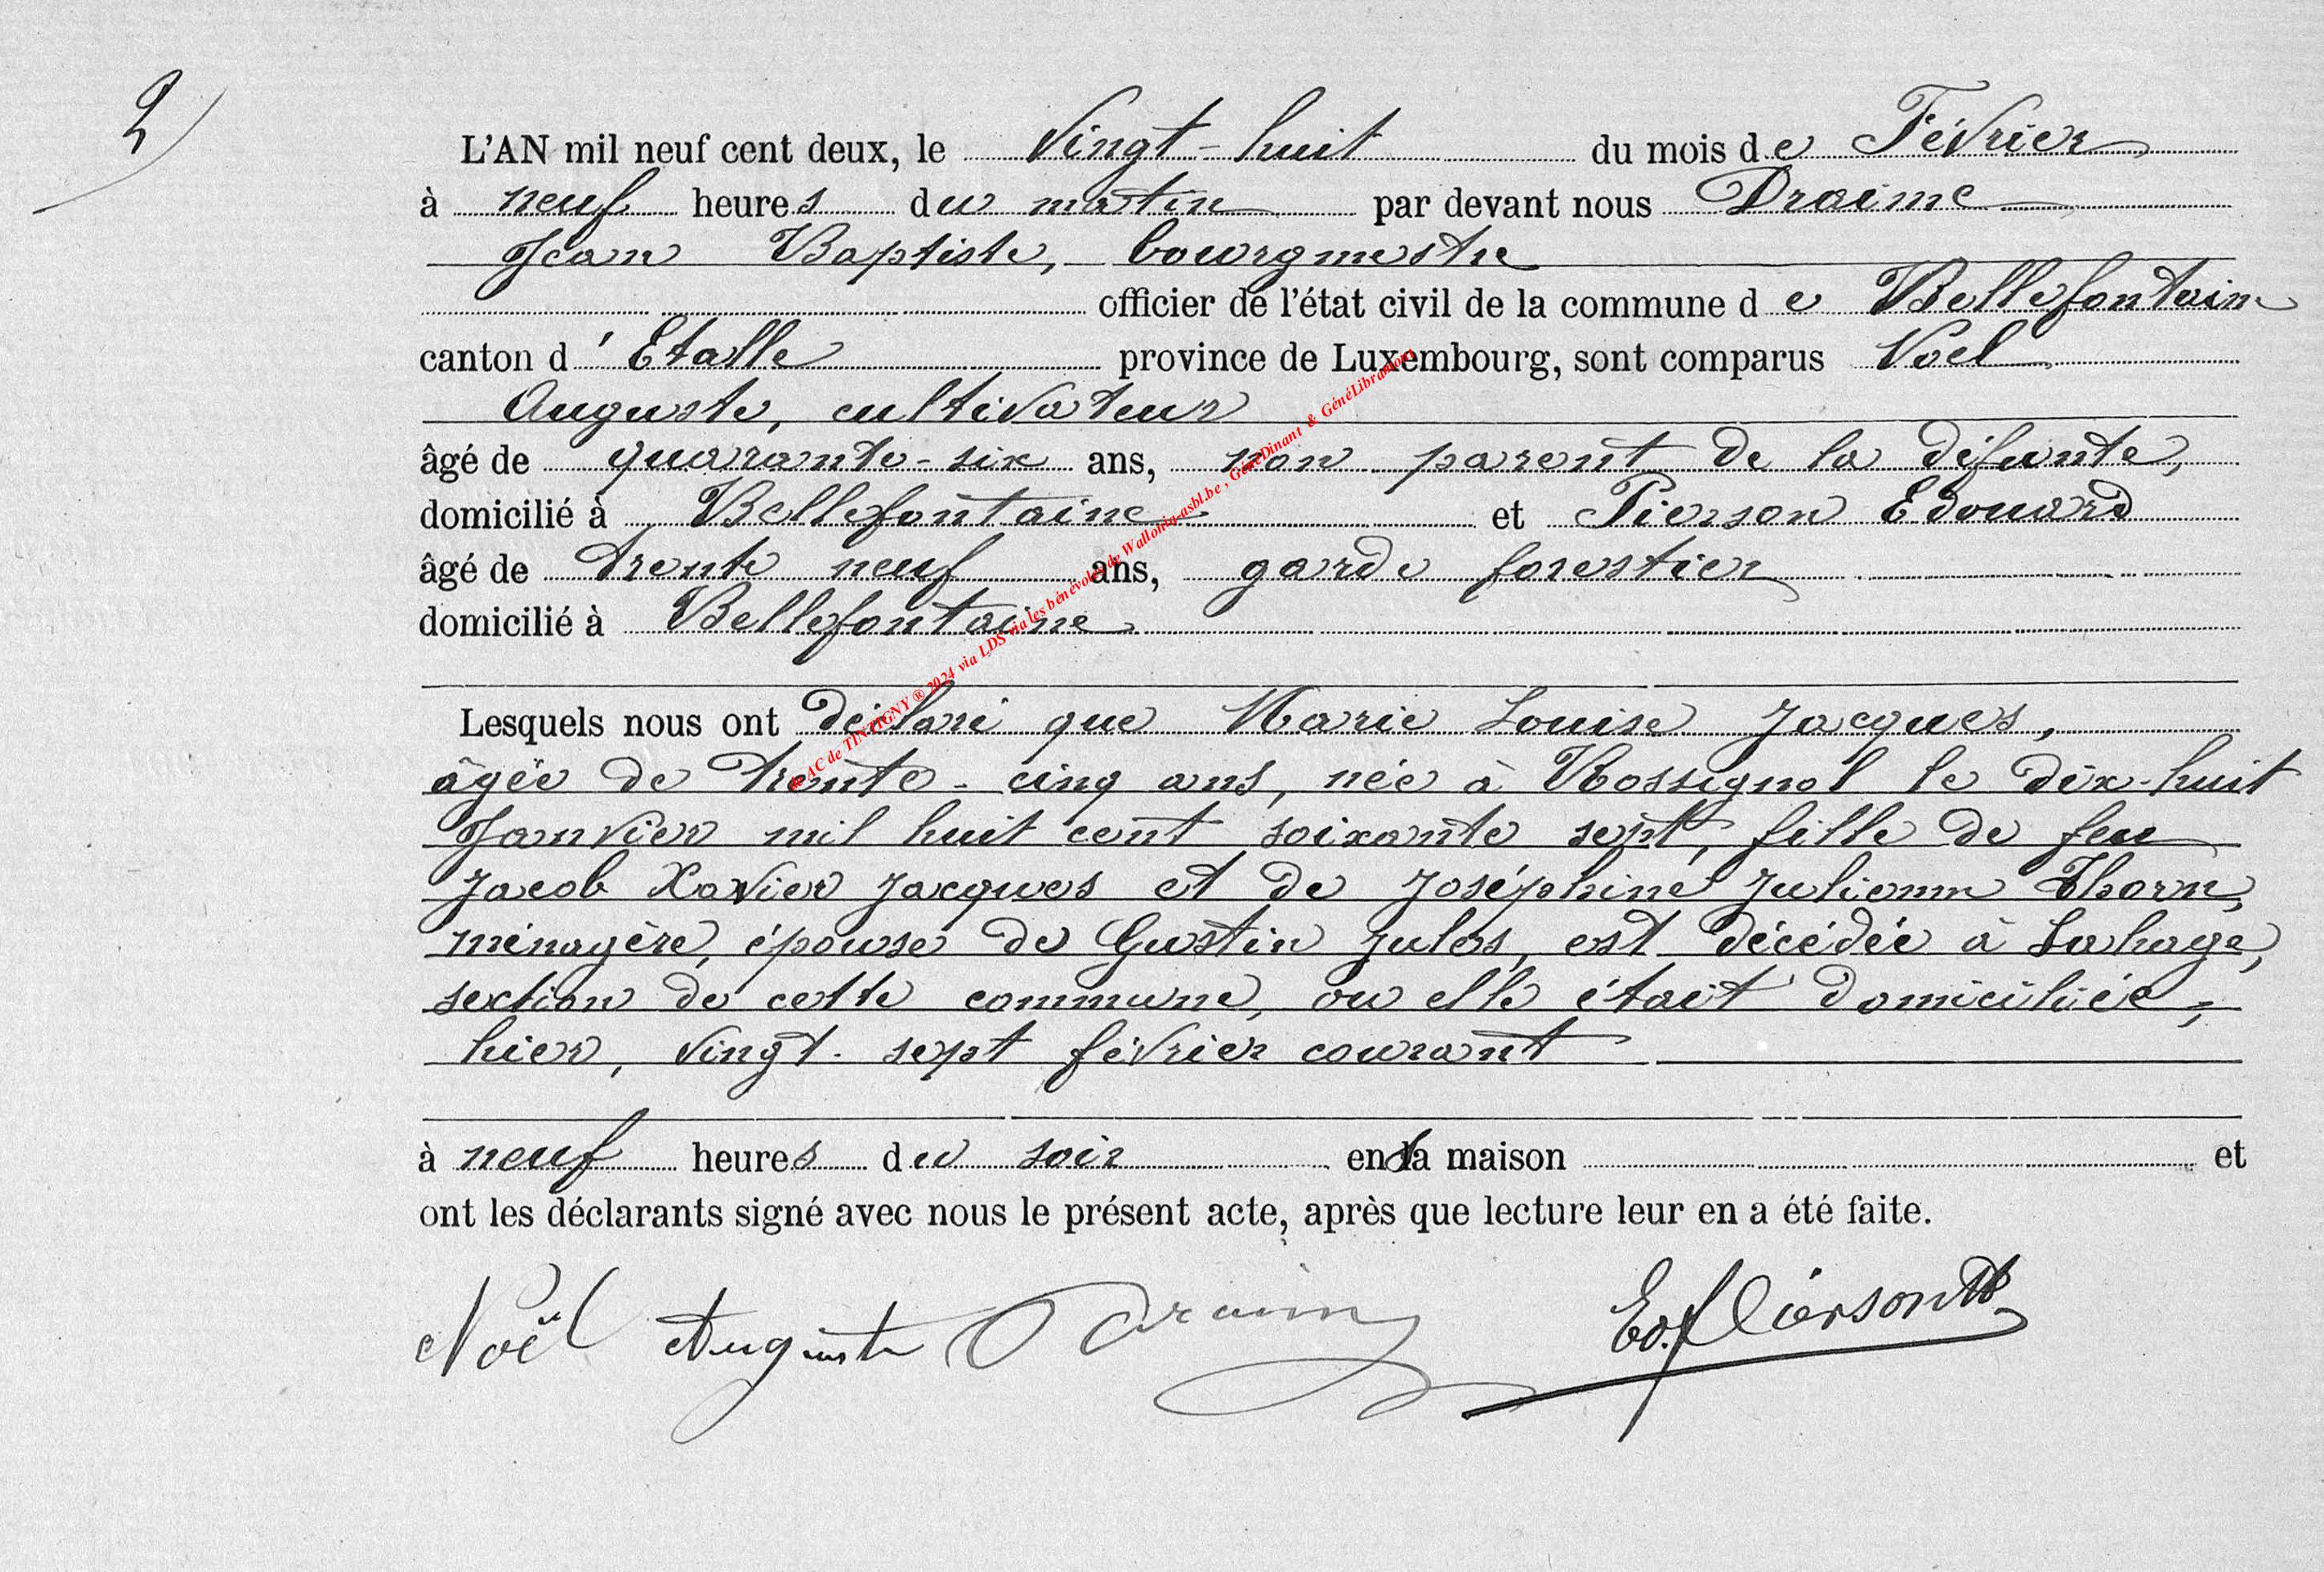 2
L'AN mil neuf cent deux, le Vingt-huit du mois de Février
à neuf heures du matin par devant nous Draime
Jean Baptiste, bourgmestre
officier de l'état civil de la commune de Bellefontaine
canton d'Etalle province de Luxembourg, sont comparus Noel
Auguste, cultivateur
âgé de quarante-six ans, non parent de la défunte,
domicilié à Bellefontaine et Pierson Edouard
âgé de trente neuf ans, garde forestier
domicilié à Bellefontaine
Lesquels nous ont déclaré que Marie Louise Jacques,
âgée de trente-cinq ans, née à Rossignol le dix-huit
Janvier mil huit cent soixante sept, fille de feu
Jacob Xavier Jacques et de Joséphine Julienne Thorn,
ménagère, épouse de Gustin Jules, est décédée à Lahage,
section de cette commune, ou elle était domiciliée,
hier, vingt-sept février courant
à neuf heures du soir en sa maison et
ont les déclarants signé avec nous le présent acte, après que lecture leur en a été faite.
Noël Auguste Draime Ed. Pierson
© AC de TINTIGNY ® 2024 via LDS via les bénévoles de Wallonia-asbl.be, GénéDinant & GénéLibramont